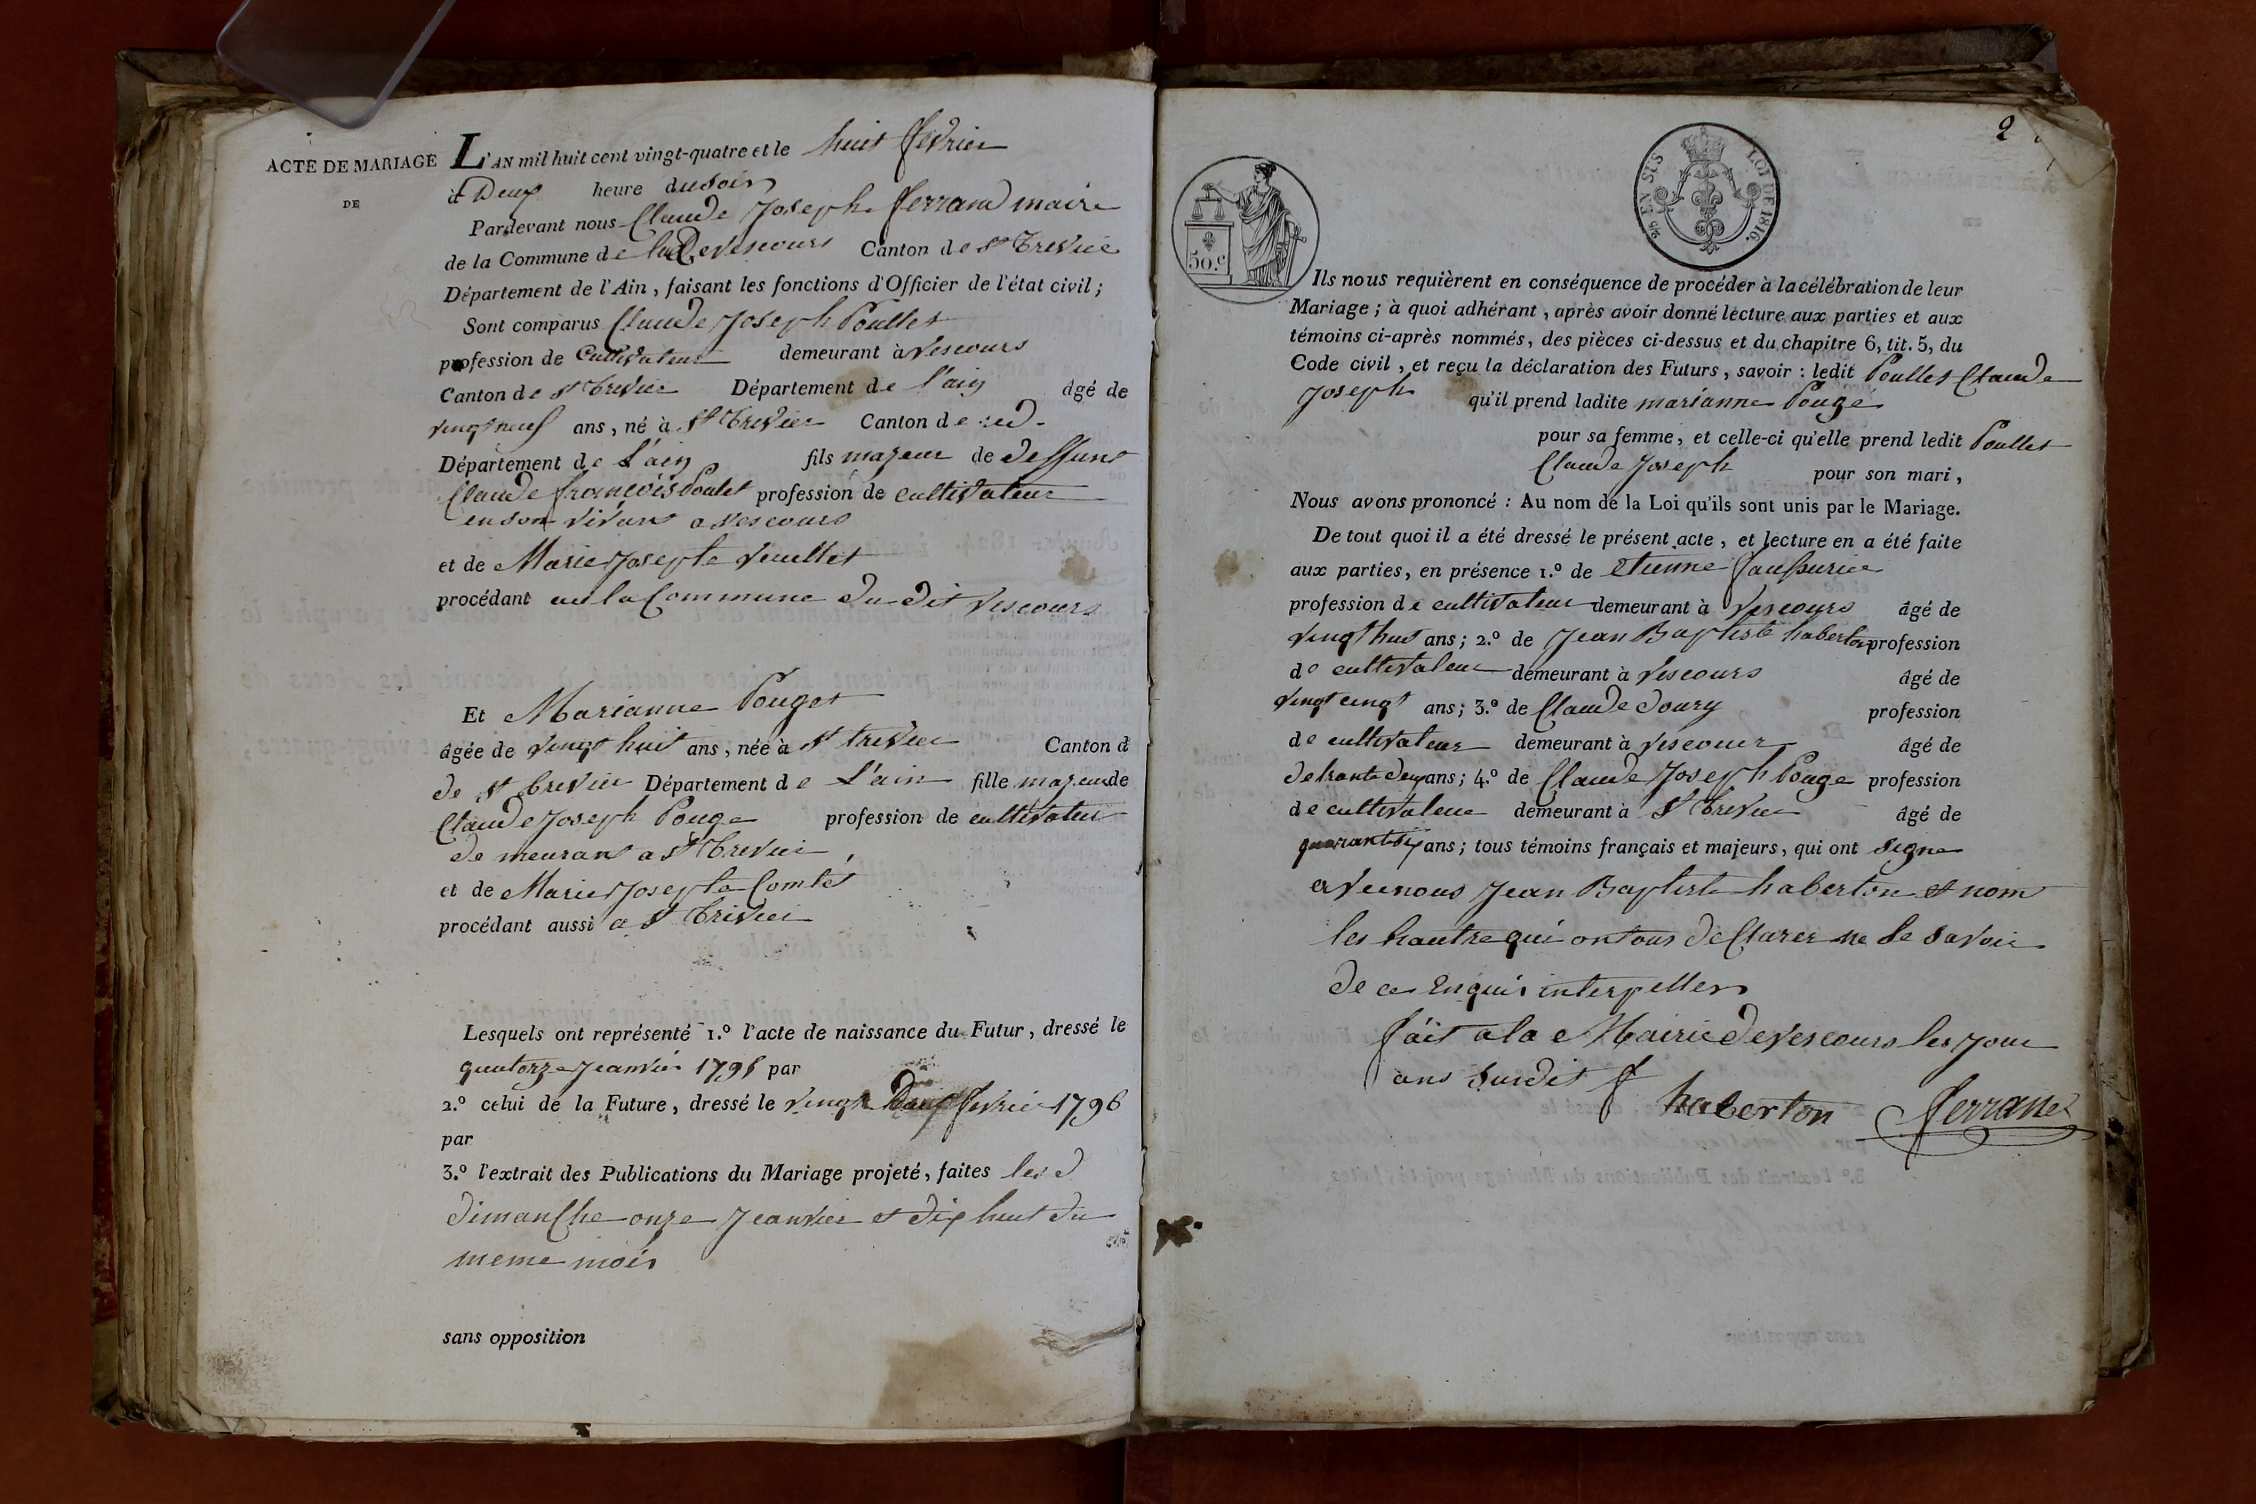 ACTE DE MARIAGE
DE
L'AN mil huit cent vingt-quatre et le huit fevrier
à Deux heure du soir
Pardevant nous Claude Joseph ferrand maire
de la Commune de Vescours Canton de St Trevier
Département de l'Ain, faisant les fonctions d'Officier de l'état civil;
Sont comparus Claude Joseph Poullet
profession de Cultivateur demeurant à Vescours
Canton de St Trevier Département de l'ain âgé de
vingt neuf ans, né à St Trevier Canton de
Département de L'ain fils majeur de deffunt
Claude françois Poulet profession de cultivateur
en son vivant a vescours
et de Marie Josephte Vuillet
procédant en la Commune du dit Vescours
Et Marianne Pouget
âgée de vingt huit ans, née à St trevier Canton d
de St trevier Département de L'ain fille majeur de
Claude Joseph Pouge profession de cultivateur
de meurant a St Trevier
et de Marie Josephte Comte
procédant aussi a St Trevier
Lesquels ont représenté 1.º l'acte de naissance du Futur, dressé le
quatorze Jeanvier 1795 par
2.º celui de la Future, dressé le vingt Deux fevrier 1796
par
3.º l'extrait des Publications du Mariage projeté, faites les d
dimanche onze Jeanvier et dix huit du
meme mois
sans opposition
2
50.c
25 EN SUS LOI DE 1816.
Ils nous requièrent en conséquence de procéder à la célébration de leur
Mariage; à quoi adhérant, après avoir donné lecture aux parties et aux
témoins ci-après nommés, des pièces ci-dessus et du chapitre 6, tit. 5, du
Code civil, et reçu la déclaration des Futurs, savoir: ledit Poullet Claude
Joseph qu'il prend ladite marianne Pouge
pour sa femme, et celle-ci qu'elle prend ledit Poullet
Claude Joseph pour son mari,
Nous avons prononcé: Au nom de la Loi qu'ils sont unis par le Mariage.
De tout quoi il a été dressé le présent acte, et lecture en a été faite
aux parties, en présence 1.º de Etienne
profession de cultivateur demeurant à Vescours âgé de
vingt huit ans; 2.º de Jean Baptiste haberton profession
de cultivateur demeurant à Vescours âgé de
vingt cinqt ans; 3.º de Claude Joseph profession
de cultivateur demeurant à vescour âgé de
ans; 4.º de Claude Joseph Pouge profession
de cultivateur demeurant à St Trevier âgé de
quarante six ans; tous témoins français et majeurs, qui ont signe
avec nous Jean Baptiste haberton et nom
les hautre qui ont tous declarer ne le savoir
de ce Enquis interpeller
fait a la Mairie de vescours les jour
ans susdit
haberton ferrand